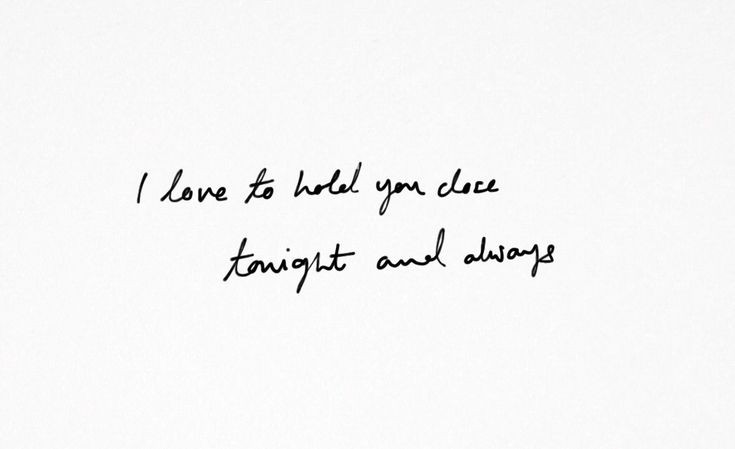 I love to hold you close
tonight and always